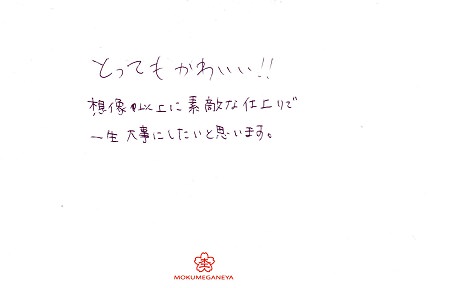 とってもかわいい!!
想像以上に素敵な仕上りで
一生大事にしたいと思います。
MOKUMEGANEYA